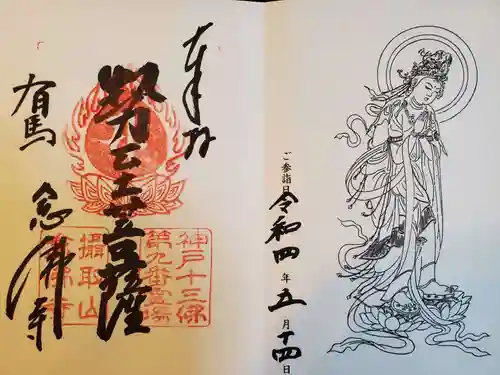 ご参詣日
令和四年五月十四日
奉拝
勢至菩薩
神戸十三佛
第九番霊場
攝取山
念佛寺
有馬 念佛寺